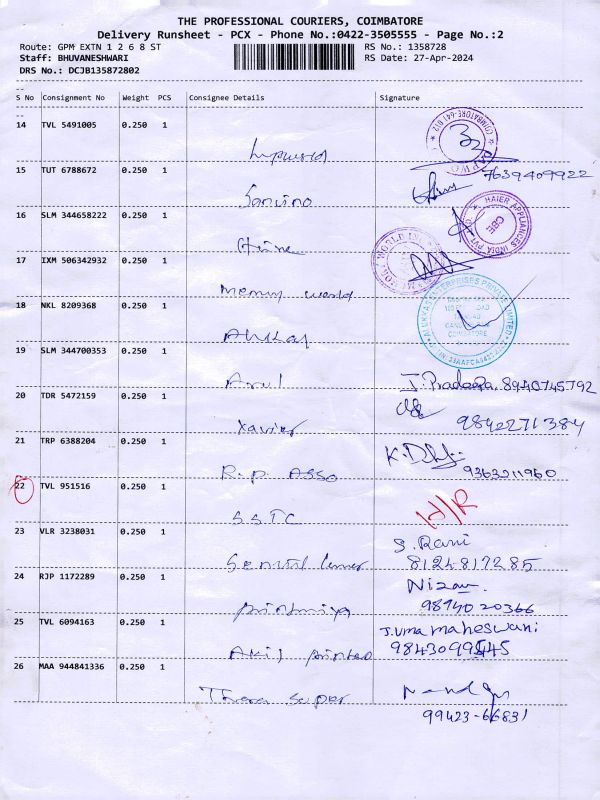 THE PROFESSIONAL COURIERS, COIMBATORE
Delivery Runsheet - PCX - Phone No.:0422-3505555 - Page No.:2
Route: GPM EXTN 1 2 6 8 ST RS No.: 1358728
Staff: BHUVANESHWARI RS Date: 27-Apr-2024
DRS No.: DCJB135872802
S No Consignment No Weight PCS Consignee Details Signature
14 TVL 5491005 0.250 1
15 TUT 6788672 0.250 1 7639409922
16 SLM 344658222 0.250 1 HAIER APPLIANCES INDIA PVT CBE
17 IXM 506342932 0.250 1
Memory world
18 NKL 8209368 0.250 1
19 SLM 344700353 0.250 1
Arul J. Pradeepa. 8940745792
20 TDR 5472159 0.250 1
Xavier 9842271384
21 TRP 6388204 0.250 1
R.P. ASSO 9363211960
22 TVL 951516 0.250 1
S.S.T.C
23 VLR 3238031 0.250 1 S. Rani
8124817285
24 RJP 1172289 0.250 1 Nizam
9894020366
25 TVL 6094163 0.250 1 J. uma maheswari
9843099545
26 MAA 944841336 0.250 1
Thera super
99423-66831